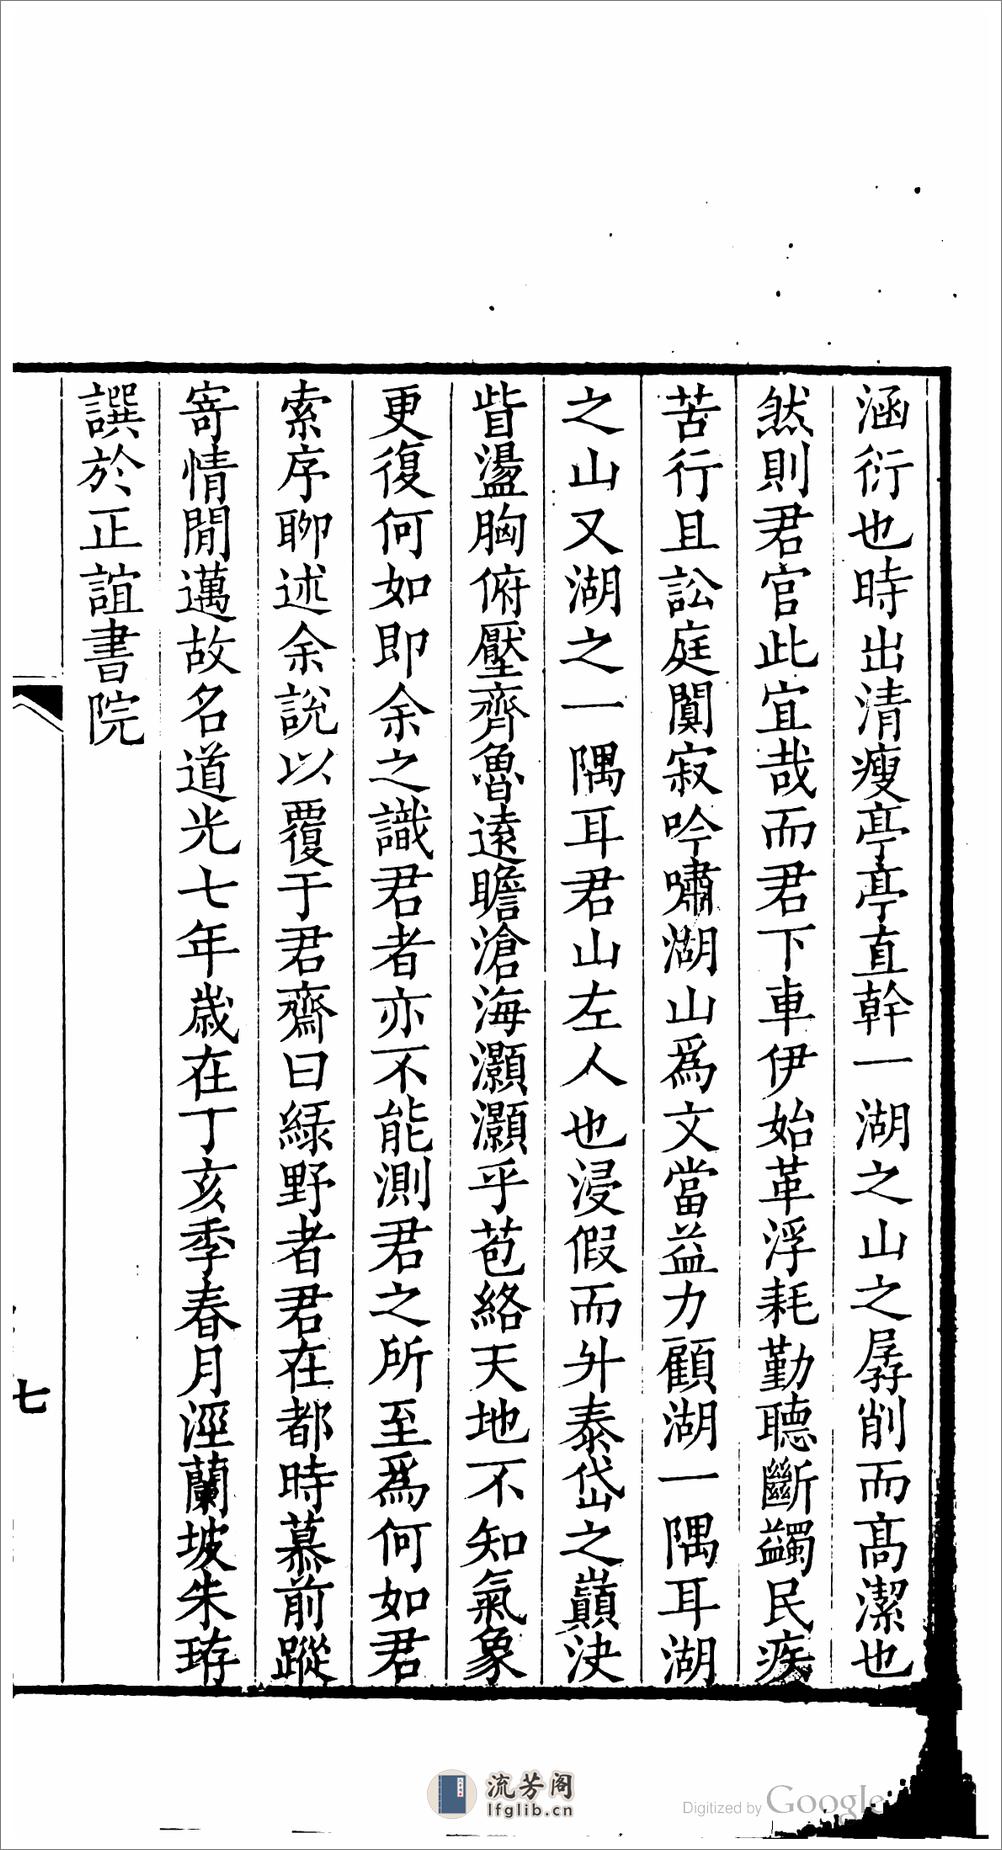 涵衍也時出清瘦亭亭直幹一湖之山之孱削而高潔也
然則君官此宜哉而君下車伊始革浮耗勤聽斷蠲民疾
苦行且訟庭闃寂吟嘯湖山爲文當益力顧湖一隅耳湖
之山又湖之一隅耳君山左人也浸假而升泰岱之巔決
眥盪胸俯壓齊魯遠瞻滄海灝灝乎苞絡天地不知氣象
更復何如即余之識君者亦不能測君之所至爲何如君
索序聊述余說以覆于君齋曰綠野者君在都時慕前蹤
寄情閒邁故名道光七年歲在丁亥季春月涇蘭坡朱珔
譔於正誼書院
七
流芳阁
lfglib.cn
Digitized by Google